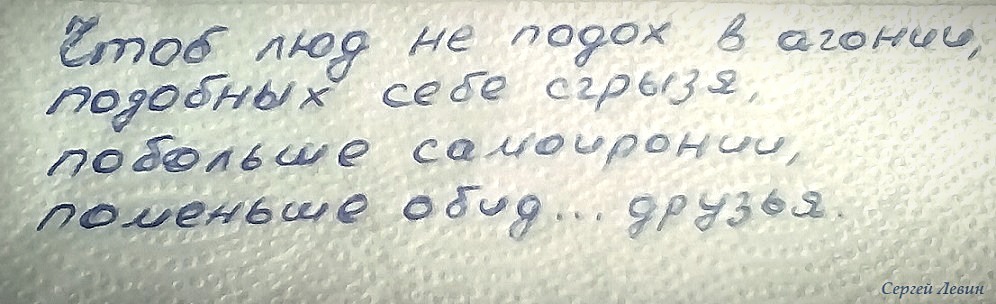 Чтоб люд не подох в агонии,
подобных себе сгрызя,
побольше самоиронии,
поменьше обид... друзья.
Сергей Левин